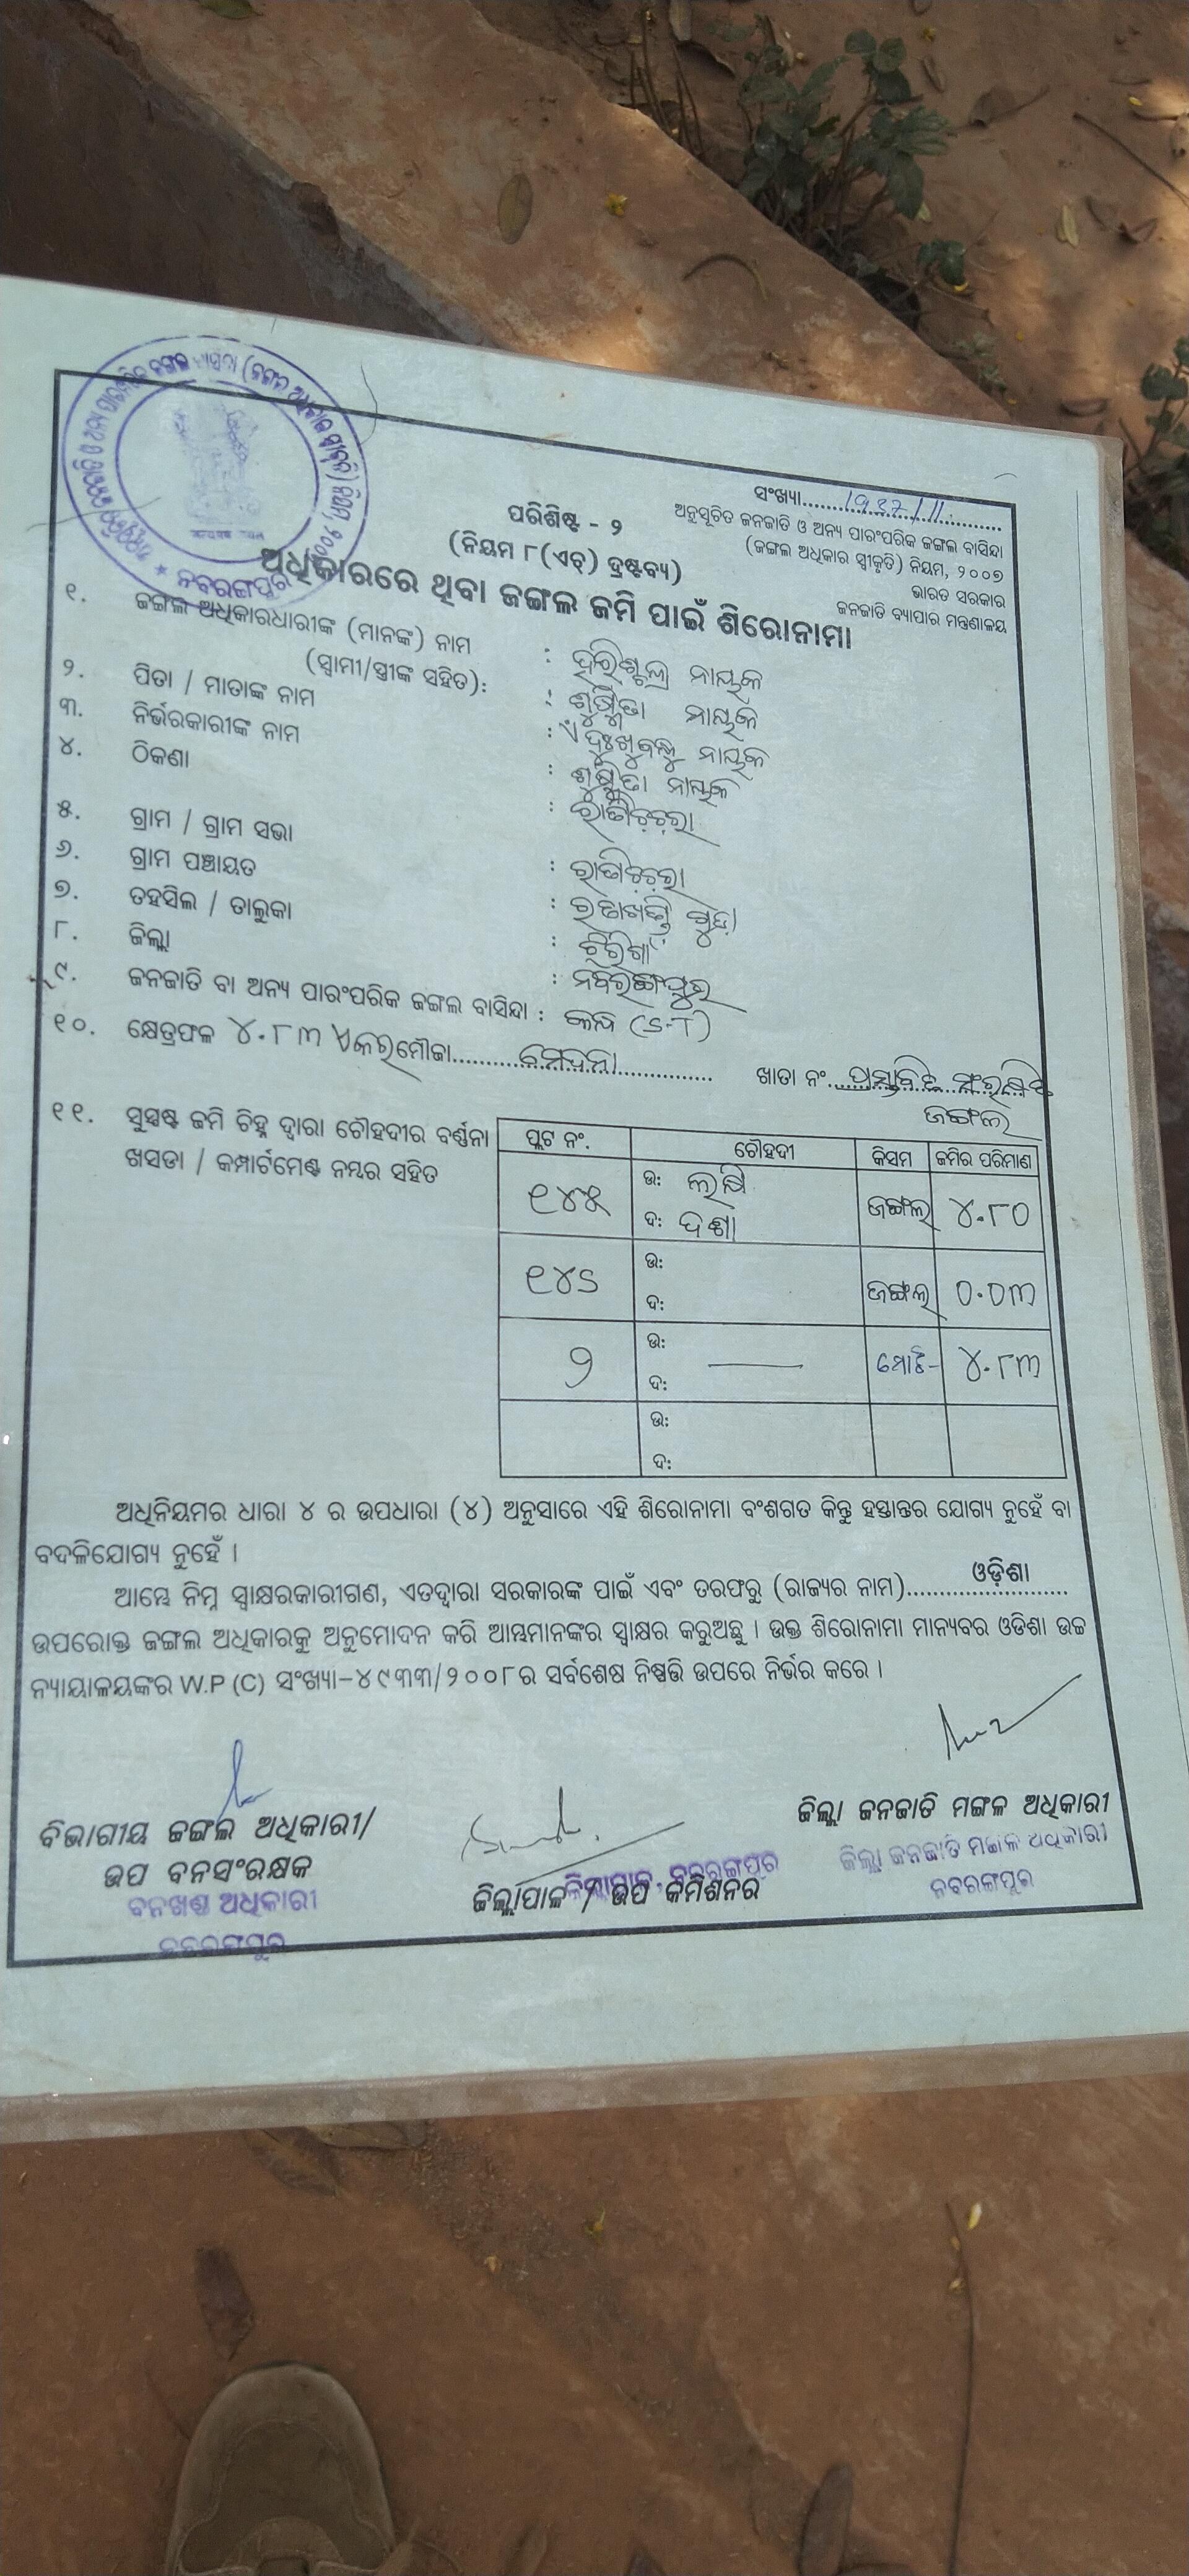 ସଂଖ୍ୟା..........1937/11..........
ଅନୁସୂଚିତ ଜନଜାତି ଓ ଅନ୍ୟ ପାରଂପରିକ ଜଙ୍ଗଲ ବାସିନ୍ଦା
(ଜଙ୍ଗଲ ଅଧିକାର ସ୍ୱୀକୃତି) ନିୟମ, ୨୦୦୭
ଭାରତ ସରକାର
ଜନଜାତି ବ୍ୟାପାର ମନ୍ତ୍ରଣାଳୟ
ନବରଙ୍ଗପୁର
ପରିଶିଷ୍ଟ - ୨
(ନିୟମ ୮(ଏଚ୍) ଦ୍ରଷ୍ଟବ୍ୟ)
ଅଧିକାରରେ ଥିବା ଜଙ୍ଗଲ ଜମି ପାଇଁ ଶିରୋନାମା
୧. ଜଙ୍ଗଲ ଅଧିକାରଧାରୀଙ୍କ (ମାନଙ୍କ) ନାମ : ହରିଶ୍ଚନ୍ଦ୍ର ନାୟକ
(ସ୍ୱାମୀ/ସ୍ତ୍ରୀଙ୍କ ସହିତ): : ନାୟକ
୨. ପିତା / ମାତାଙ୍କ ନାମ : ନାୟକ
୩. ନିର୍ଭରକାରୀଙ୍କ ନାମ : ନାୟକ
୪. ଠିକଣା :
୫. ଗ୍ରାମ / ଗ୍ରାମ ସଭା :
୬. ଗ୍ରାମ ପଞ୍ଚାୟତ : ଗୁଡ଼ା
୭. ତହସିଲ / ତାଲୁକା :
୮. ଜିଲ୍ଲା : ନବରଙ୍ଗପୁର
୯. ଜନଜାତି ବା ଅନ୍ୟ ପାରଂପରିକ ଜଙ୍ଗଲ ବାସିନ୍ଦା : (S-T)
୧୦. କ୍ଷେତ୍ରଫଳ ୪.୮୩ ଏକର ମୌଜା.................... ଖାତା ନଂ. ପ୍ରସ୍ତାବିତ ସଂରକ୍ଷିତ
ଜଙ୍ଗଲ
୧୧. ସୁସ୍ପଷ୍ଟ ଜମି ଚିହ୍ନ ଦ୍ୱାରା ଚୌହଦୀର ବର୍ଣ୍ଣନା
ଖସଡା / କମ୍ପାର୍ଟମେଣ୍ଟ ନମ୍ବର ସହିତ
ପ୍ଲଟ ନଂ. ଚୌହଦୀ କିସମ ଜମିର ପରିମାଣ
୧୪୫ ଉ: ଜଙ୍ଗଲ ୪.୮୦
ଦ:
୧୪୬ ଉ: ଜଙ୍ଗଲ ୦.୦୩
ଦ:
୨ ଉ: ମୋଟ- ୪.୮୩
ଦ:
ଉ:
ଦ:
ଅଧିନିୟମର ଧାରା ୪ ର ଉପଧାରା (୪) ଅନୁସାରେ ଏହି ଶିରୋନାମା ବଂଶଗତ କିନ୍ତୁ ହସ୍ତାନ୍ତର ଯୋଗ୍ୟ ନୁହେଁ ବା
ବଦଳିଯୋଗ୍ୟ ନୁହେଁ ।
ଆମ୍ଭେ ନିମ୍ନ ସ୍ୱାକ୍ଷରକାରୀଗଣ, ଏତଦ୍ୱାରା ସରକାରଙ୍କ ପାଇଁ ଏବଂ ତରଫରୁ (ରାଜ୍ୟର ନାମ)......ଓଡ଼ିଶା......
ଉପରୋକ୍ତ ଜଙ୍ଗଲ ଅଧିକାରକୁ ଅନୁମୋଦନ କରି ଆମ୍ଭମାନଙ୍କର ସ୍ୱାକ୍ଷର କରୁଅଛୁ । ଉକ୍ତ ଶିରୋନାମା ମାନ୍ୟବର ଓଡିଶା ଉଚ୍ଚ
ନ୍ୟାୟାଳୟଙ୍କର W.P (C) ସଂଖ୍ୟା-୪୯୩୩/୨୦୦୮ର ସର୍ବଶେଷ ନିଷ୍ପତ୍ତି ଉପରେ ନିର୍ଭର କରେ ।
ବିଭାଗୀୟ ଜଙ୍ଗଲ ଅଧିକାରୀ/
ଉପ ବନସଂରକ୍ଷକ
ବନଖଣ୍ଡ ଅଧିକାରୀ
ନବରଙ୍ଗପୁର
ଜିଲ୍ଲାପାଳ, ନବରଙ୍ଗପୁର
ଜିଲ୍ଲାପାଳ / ଉପ କମିଶନର
ଜିଲ୍ଲା ଜନଜାତି ମଙ୍ଗଳ ଅଧିକାରୀ
ଜିଲ୍ଲା ଜନଜାତି ମଙ୍ଗଳ ଅଧିକାରୀ
ନବରଙ୍ଗପୁର